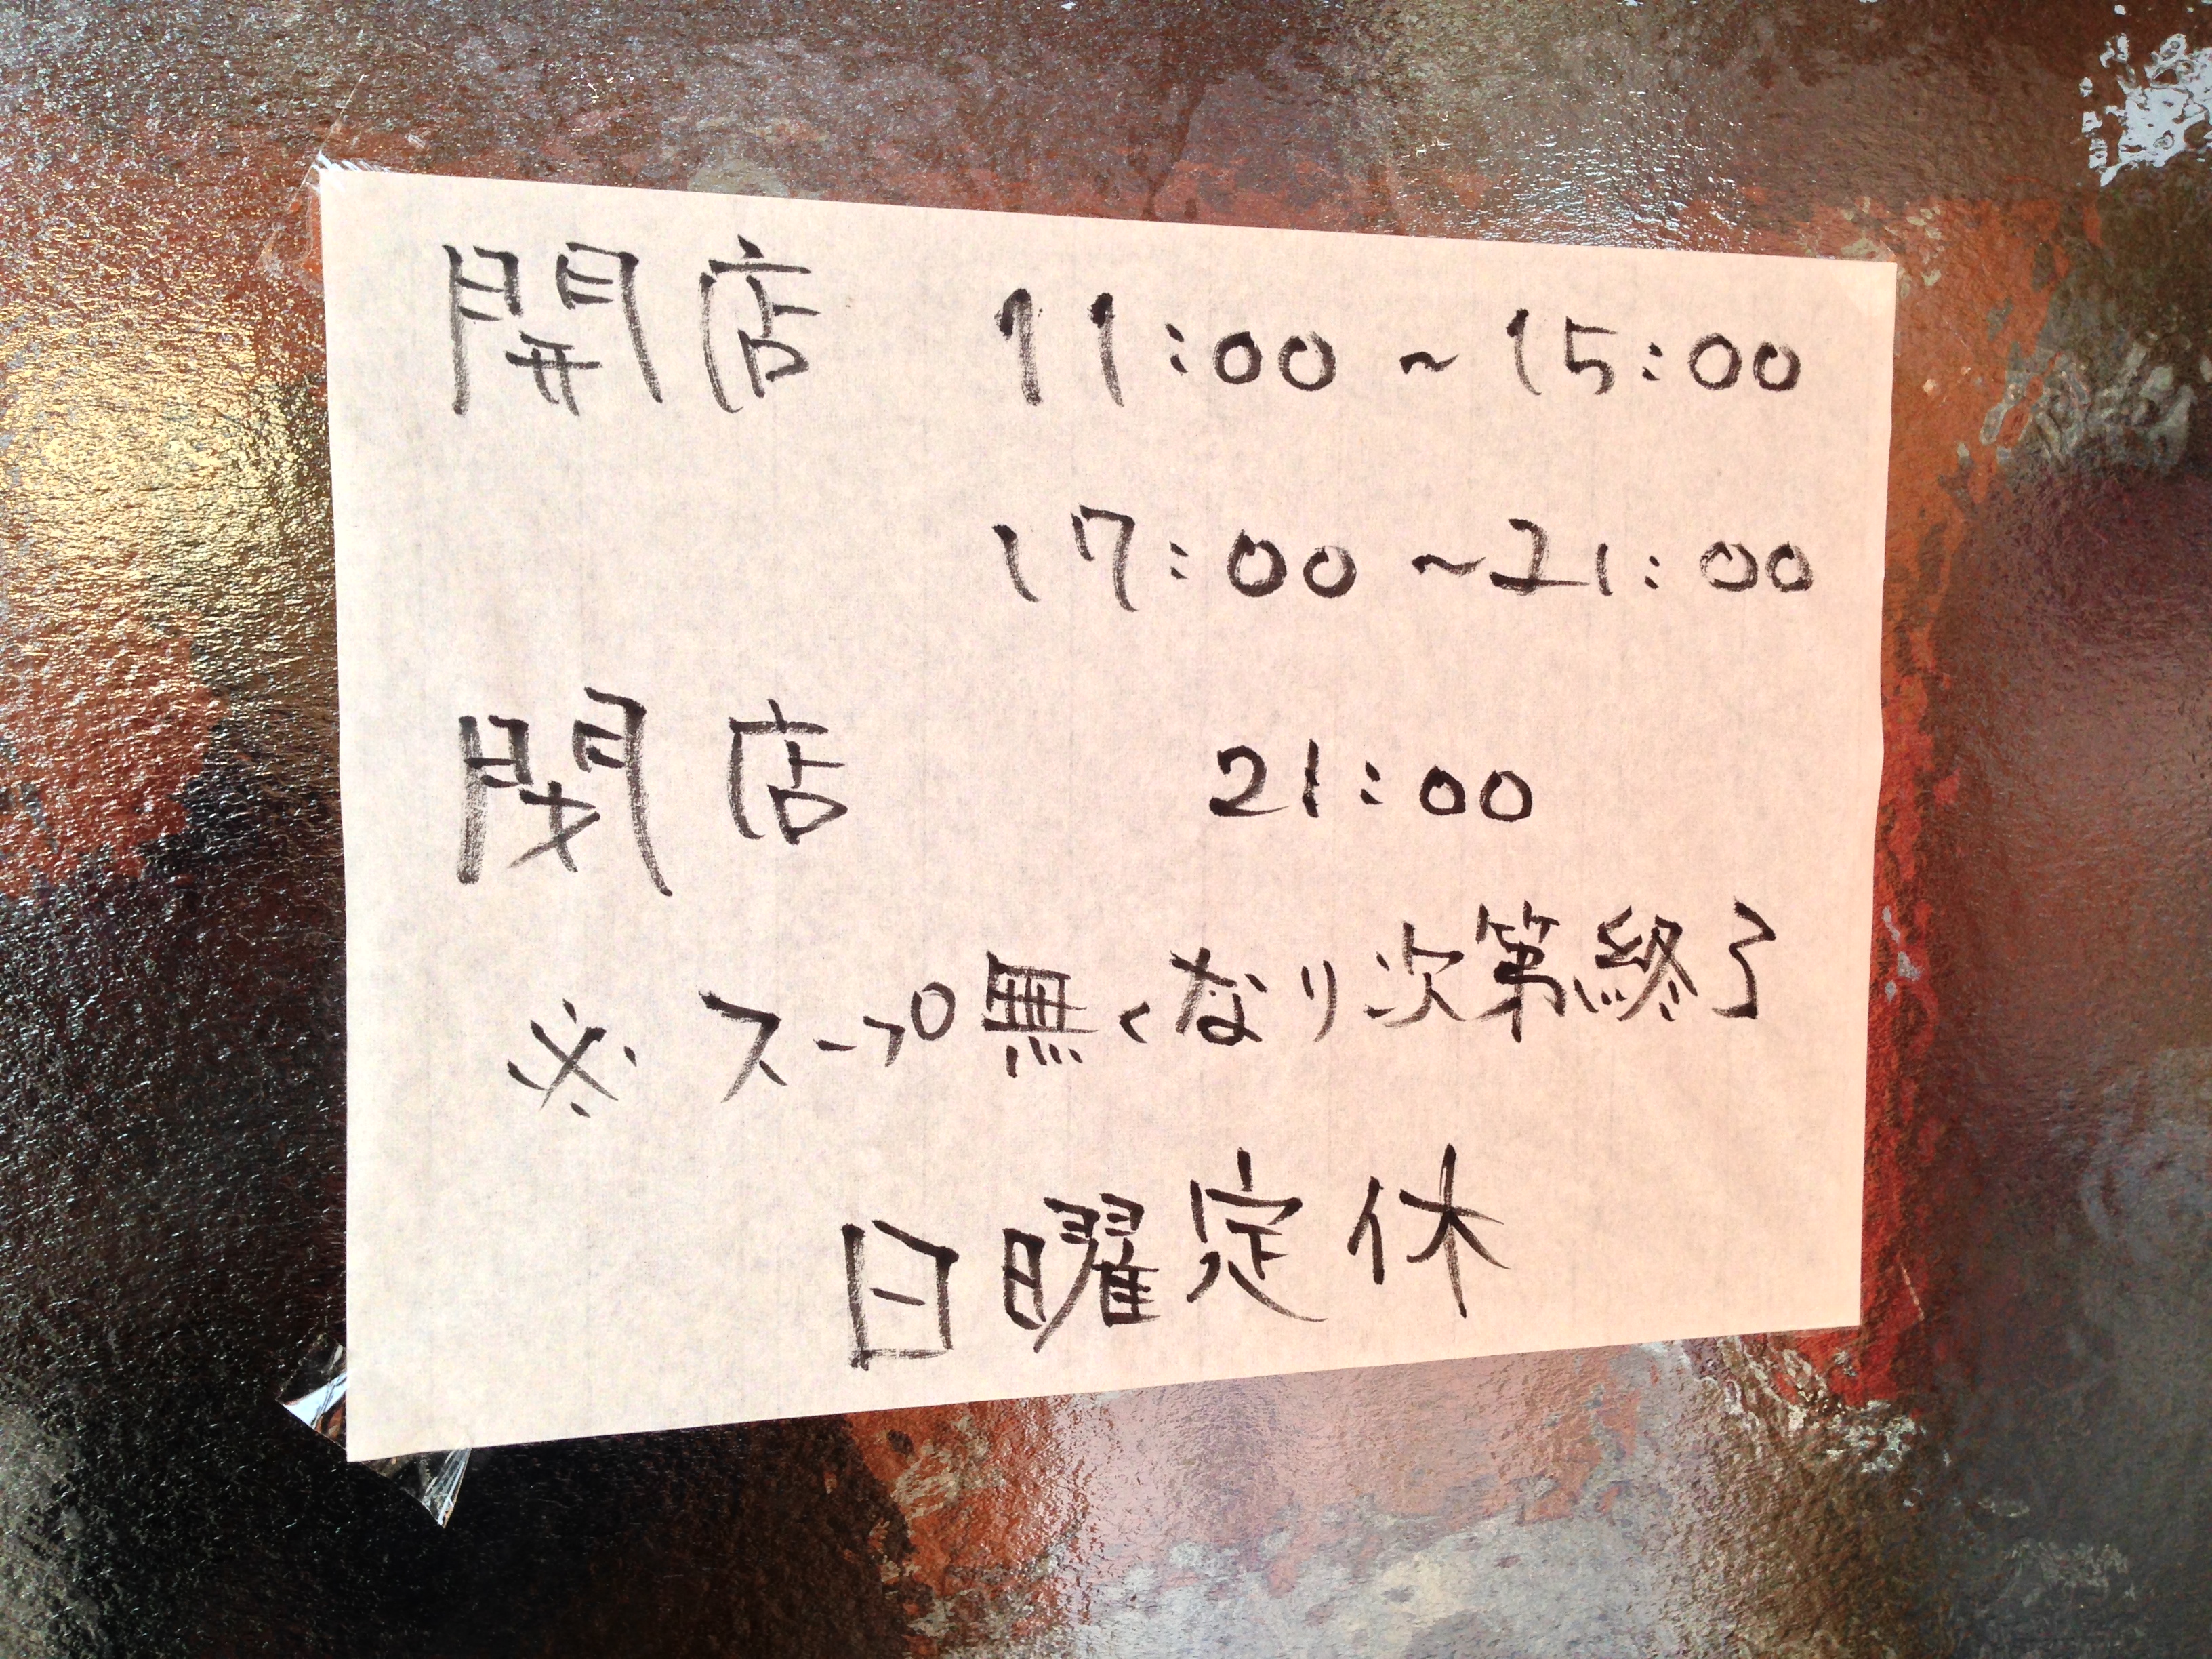 開店 11:00～15:00
17:00～21:00
閉店 21:00
※スープ無くなり次第終了
日曜定休